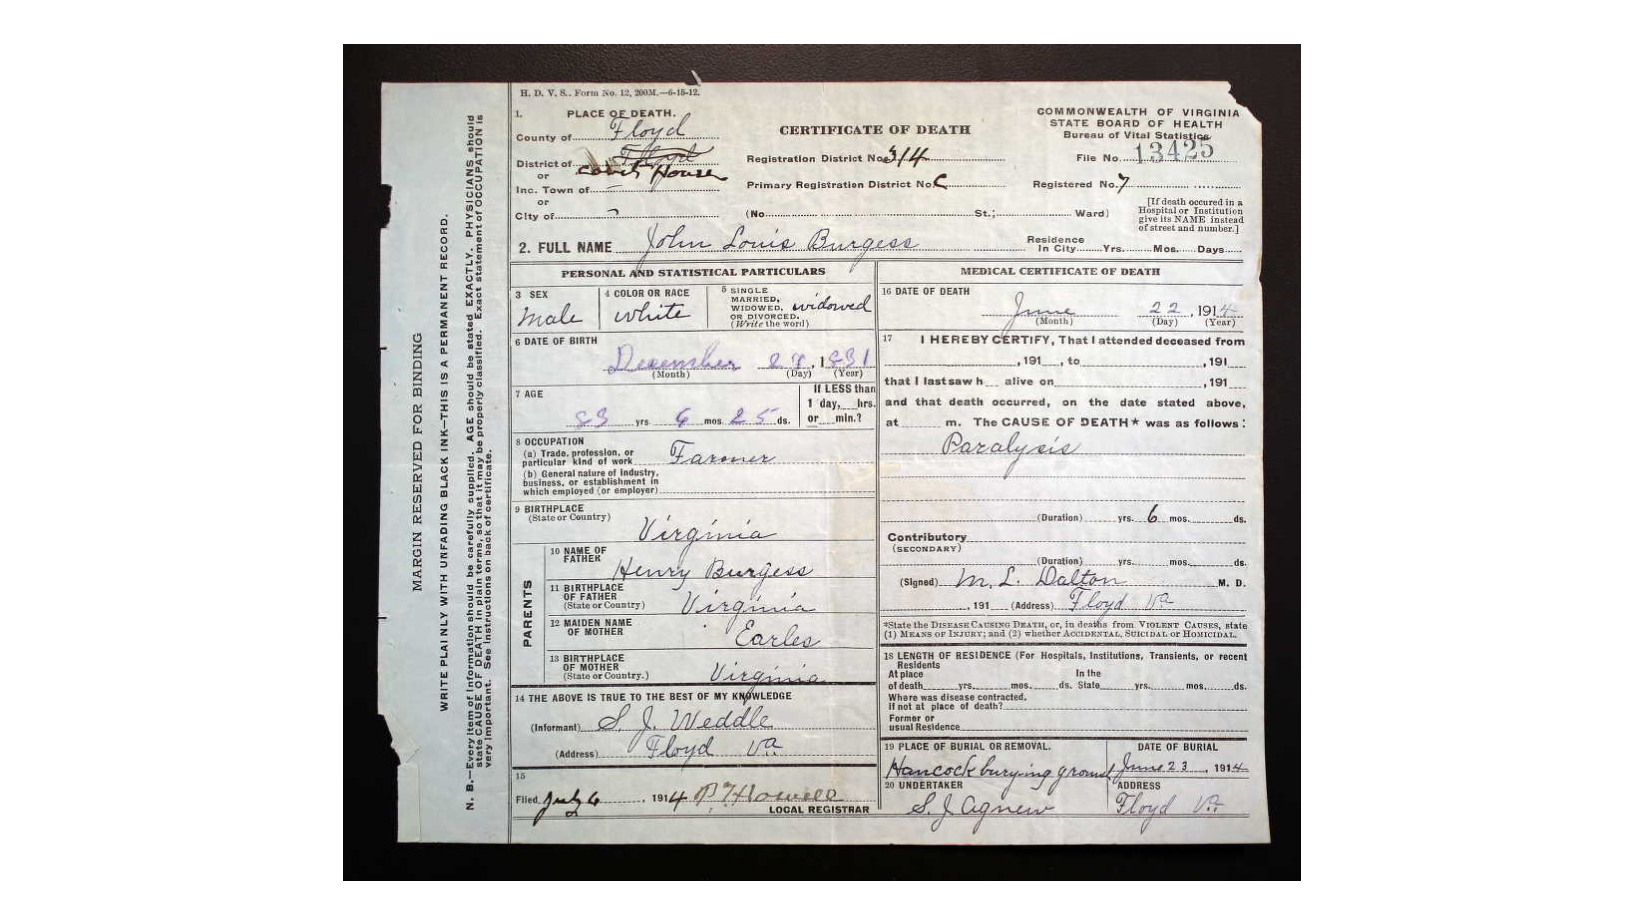 H. D. V. S., Form No. 12, 200M.—6-15-12.
1. PLACE OF DEATH.
County of Floyd
District of Floyd
Court House
or
Inc. Town of
or
City of
CERTIFICATE OF DEATH
Registration District No. 314
Primary Registration District No. C
(No. St.; Ward)
COMMONWEALTH OF VIRGINIA
STATE BOARD OF HEALTH
Bureau of Vital Statistics
File No. 13425
Registered No. 7
[If death occured in a
Hospital or Institution
give its NAME instead
of street and number.]
2. FULL NAME John Louis Burgess
Residence
In City Yrs. Mos. Days
PERSONAL AND STATISTICAL PARTICULARS
3 SEX
Male
4 COLOR OR RACE
White
5 SINGLE
MARRIED,
WIDOWED,
OR DIVORCED.
(Write the word)
widowed
6 DATE OF BIRTH
December 27, 1831
(Month) (Day) (Year)
7 AGE
83 yrs 6 mos 25 ds.
If LESS than
1 day, hrs.
or min.?
8 OCCUPATION
(a) Trade, profession, or
particular kind of work Farmer
(b) General nature of industry,
business, or establishment in
which employed (or employer)
9 BIRTHPLACE
(State or Country)
Virginia
PARENTS
10 NAME OF
FATHER
Henry Burgess
11 BIRTHPLACE
OF FATHER
(State or Country) Virginia
12 MAIDEN NAME
OF MOTHER Earles
13 BIRTHPLACE
OF MOTHER
(State or Country.) Virginia
14 THE ABOVE IS TRUE TO THE BEST OF MY KNOWLEDGE
(Informant) S. J. Weddle
(Address) Floyd Va
15
Filed July 6, 1914 Howell
LOCAL REGISTRAR
MEDICAL CERTIFICATE OF DEATH
16 DATE OF DEATH
June 22, 1914
(Month) (Day) (Year)
17 I HEREBY CERTIFY, That I attended deceased from
, 191 , to , 191
that I last saw h alive on , 191
and that death occurred, on the date stated above,
at m. The CAUSE OF DEATH* was as follows:
Paralysis
(Duration) yrs. 6 mos. ds.
Contributory
(SECONDARY)
(Duration) yrs. mos. ds.
(Signed) M. L. Dalton M. D.
, 191 (Address) Floyd Va
*State the DISEASE CAUSING DEATH, or, in deaths from VIOLENT CAUSES, state
(1) MEANS OF INJURY; and (2) whether ACCIDENTAL, SUICIDAL or HOMICIDAL.
18 LENGTH OF RESIDENCE (For Hospitals, Institutions, Transients, or recent
Residents
At place In the
of death yrs. mos. ds. State yrs. mos. ds.
Where was disease contracted.
If not at place of death?
Former or
usual Residence
19 PLACE OF BURIAL OR REMOVAL.
Hancock burying ground
DATE OF BURIAL
June 23, 1914
20 UNDERTAKER
S. J. Agnew
ADDRESS
Floyd Va.
MARGIN RESERVED FOR BINDING
WRITE PLAINLY WITH UNFADING BLACK INK—THIS IS A PERMANENT RECORD.
N. B.—Every item of information should be carefully supplied. AGE should be stated EXACTLY. PHYSICIANS should
state CAUSE OF DEATH in plain terms, so that it may be properly classified. Exact statement of OCCUPATION is
very important. See instructions on back of certificate.